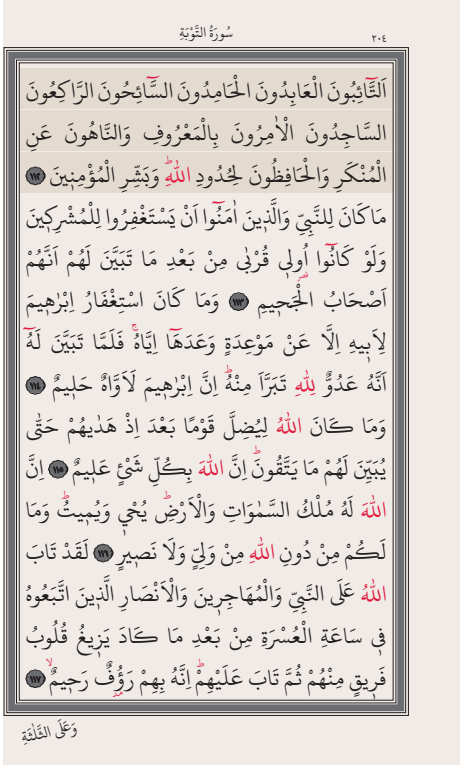 سُورَةُ التَّوْبَةِ ٢٠٤
اَلتَّٓائِبُونَ الْعَابِدُونَ الْحَامِدُونَ السَّٓائِحُونَ الرَّاكِعُونَ
السَّاجِدُونَ الْاٰمِرُونَ بِالْمَعْرُوفِ وَالنَّاهُونَ عَنِ
الْمُنْكَرِ وَالْحَافِظُونَ لِحُدُودِ اللّٰهِۜ وَبَشِّرِ الْمُؤْمِن۪ينَ ﴿١١٢﴾
مَا كَانَ لِلنَّبِيِّ وَالَّذ۪ينَ اٰمَنُٓوا اَنْ يَسْتَغْفِرُوا لِلْمُشْرِك۪ينَ
وَلَوْ كَانُٓوا اُو۬ل۪ي قُرْبٰى مِنْ بَعْدِ مَا تَبَيَّنَ لَهُمْ اَنَّهُمْ
اَصْحَابُ الْجَح۪يمِ ﴿١١٣﴾ وَمَا كَانَ اسْتِغْفَارُ اِبْرٰه۪يمَ
لِاَب۪يهِ اِلَّا عَنْ مَوْعِدَةٍ وَعَدَهَٓا اِيَّاهُۚ فَلَمَّا تَبَيَّنَ لَهُٓ
اَنَّهُ عَدُوٌّ لِلّٰهِ تَبَرَّاَ مِنْهُۜ اِنَّ اِبْرٰه۪يمَ لَاَوَّاهٌ حَل۪يمٌ ﴿١١٤﴾
وَمَا كَانَ اللّٰهُ لِيُضِلَّ قَوْمًا بَعْدَ اِذْ هَدٰيهُمْ حَتّٰى
يُبَيِّنَ لَهُمْ مَا يَتَّقُونَۜ اِنَّ اللّٰهَ بِكُلِّ شَيْءٍ عَل۪يمٌ ﴿١١٥﴾ اِنَّ
اللّٰهَ لَهُ مُلْكُ السَّمٰوَاتِ وَالْاَرْضِۜ يُحْي۪ وَيُم۪يتُۜ وَمَا
لَكُمْ مِنْ دُونِ اللّٰهِ مِنْ وَلِيٍّ وَلَا نَص۪يرٍ ﴿١١٦﴾ لَقَدْ تَابَ
اللّٰهُ عَلَى النَّبِيِّ وَالْمُهَاجِر۪ينَ وَالْاَنْصَارِ الَّذ۪ينَ اتَّبَعُوهُ
ف۪ي سَاعَةِ الْعُسْرَةِ مِنْ بَعْدِ مَا كَادَ يَز۪يغُ قُلُوبُ
فَر۪يقٍ مِنْهُمْ ثُمَّ تَابَ عَلَيْهِمْۜ اِنَّهُ بِهِمْ رَؤُ۫فٌ رَح۪يمٌۙ ﴿١١٧﴾
وَعَلَى الثَّلٰثَةِ